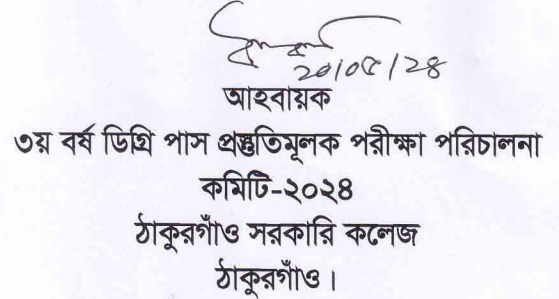 ২০/০৫/২৪
আহবায়ক
৩য় বর্ষ ডিগ্রি পাস প্রস্তুতিমূলক পরীক্ষা পরিচালনা
কমিটি-২০২৪
ঠাকুরগাঁও সরকারি কলেজ
ঠাকুরগাঁও।